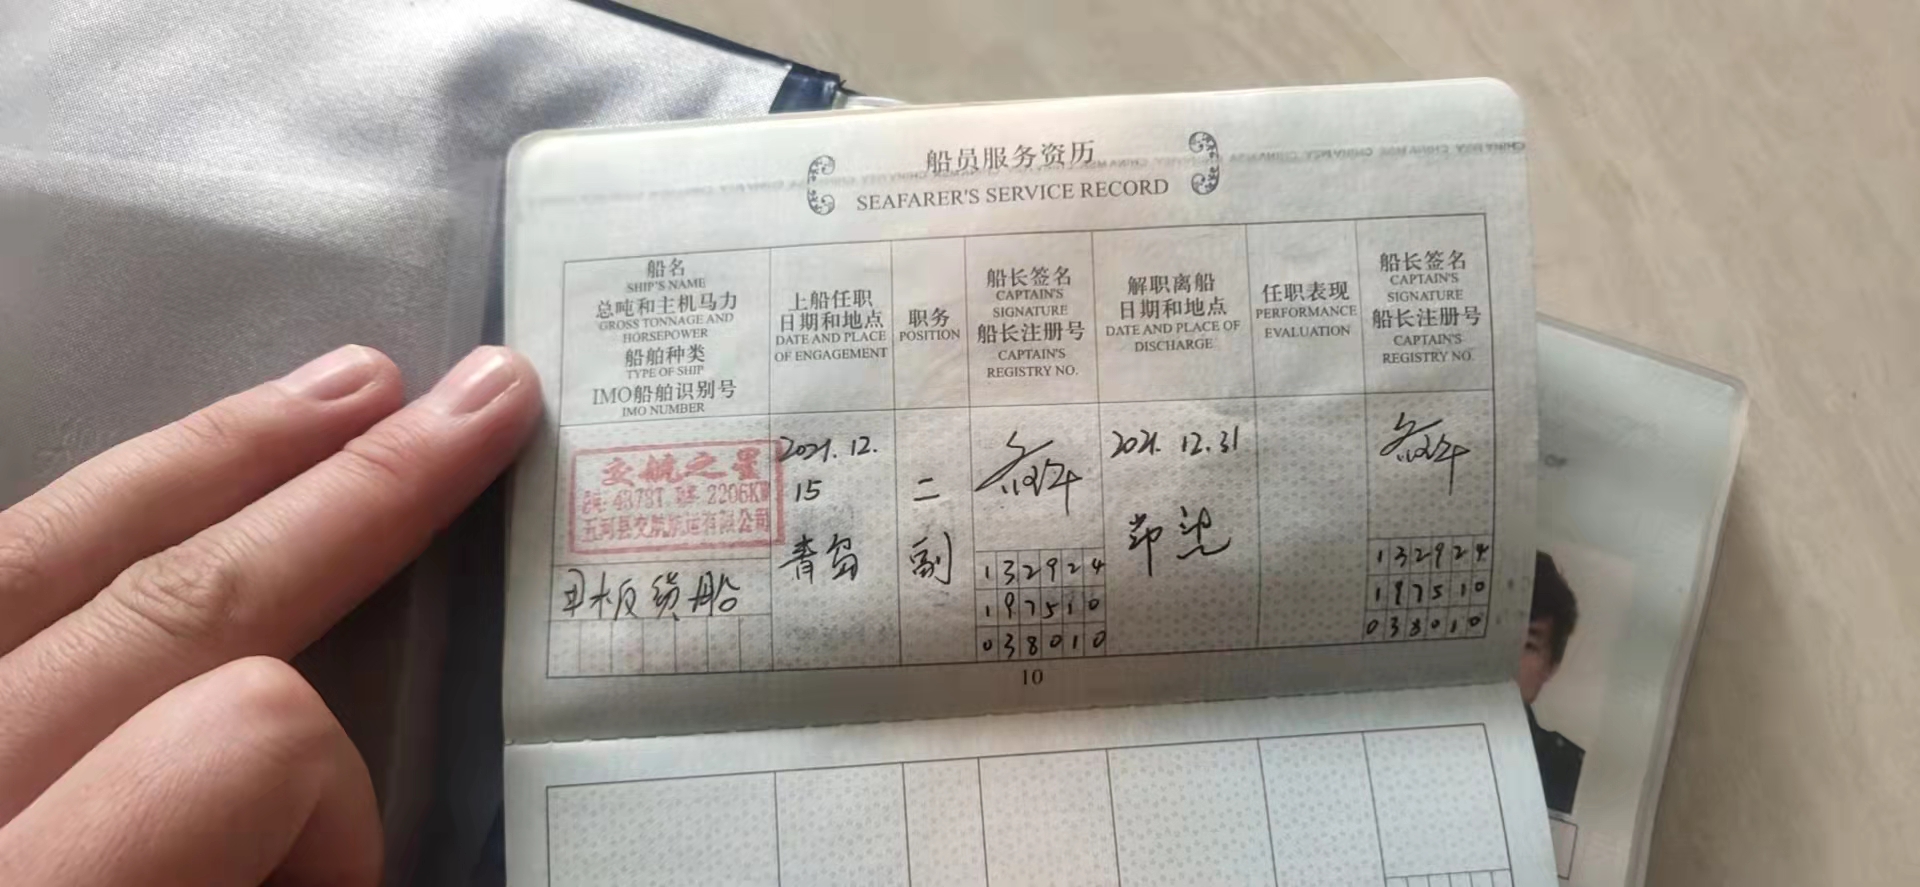 船员服务资历
SEAFARER'S SERVICE RECORD
船名
SHIP'S NAME
总吨和主机马力
GROSS TONNAGE AND
HORSEPOWER
船舶种类
TYPE OF SHIP
IMO船舶识别号
IMO NUMBER
上船任职
日期和地点
DATE AND PLACE
OF ENGAGEMENT
职务
POSITION
船长签名
CAPTAIN'S
SIGNATURE
船长注册号
CAPTAIN'S
REGISTRY NO.
解职离船
日期和地点
DATE AND PLACE OF
DISCHARGE
任职表现
PERFORMANCE
EVALUATION
船长签名
CAPTAIN'S
SIGNATURE
船长注册号
CAPTAIN'S
REGISTRY NO.
交航之星
4878T 2206KW
五河县交航航运有限公司
甲板货船
2021.12.
15
青岛
二
副
132924
197510
038010
2021.12.31
132924
197510
038010
10